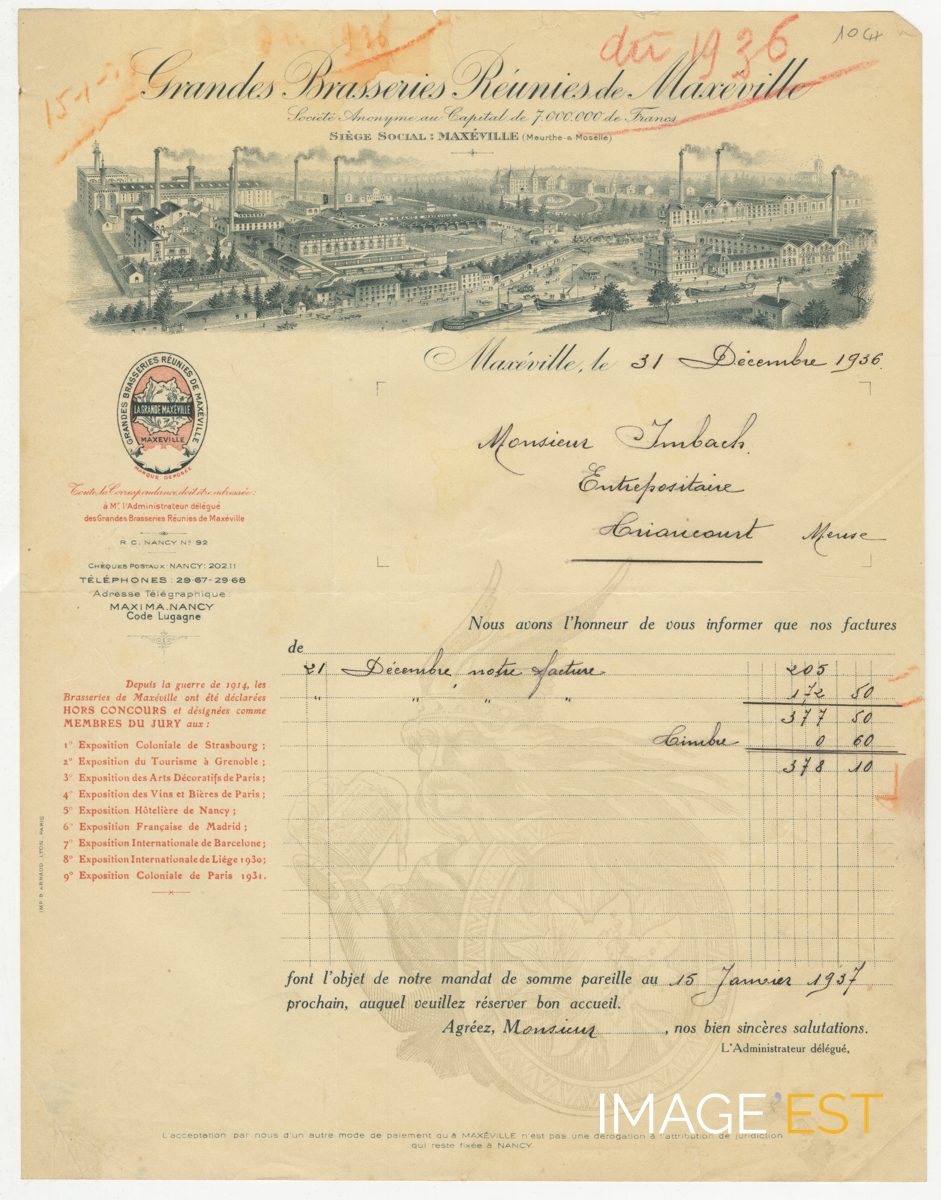 du 1936
104
15-1-
Grandes Brasseries Réunies de Maxéville
Société Anonyme au Capital de 7.000.000 de Francs
SIÈGE SOCIAL : MAXÉVILLE (Meurthe & Moselle)
LA GRANDE MAXÉVILLE
Maxéville, le 31 Décembre 1936.
GRANDES BRASSERIES RÉUNIES DE MAXÉVILLE
LA GRANDE MAXÉVILLE
MAXEVILLE
MARQUE DÉPOSÉE
Monsieur Imbach.
Entrepositaire
Meuse
Toute la Correspondance doit être adressée :
à Mr. l'Administrateur délégué
des Grandes Brasseries Réunies de Maxéville
R. C. NANCY No 92
CHÈQUES POSTAUX : NANCY : 202.11
TÉLÉPHONES : 29-67 - 29-68
Adresse Télégraphique :
MAXIMA.NANCY
Code Lugagne
Nous avons l'honneur de vous informer que nos factures
de
21 Décembre, notre facture 205
" " " " 172 50
377 50
Timbre 0 60
378 10
Depuis la guerre de 1914, les
Brasseries de Maxéville ont été déclarées
HORS CONCOURS et désignées comme
MEMBRES DU JURY aux :
1° Exposition Coloniale de Strasbourg ;
2° Exposition du Tourisme à Grenoble ;
3° Exposition des Arts Décoratifs de Paris ;
4° Exposition des Vins et Bières de Paris ;
5° Exposition Hôtelière de Nancy ;
6° Exposition Française de Madrid ;
7° Exposition Internationale de Barcelone ;
8° Exposition Internationale de Liége 1930 ;
9° Exposition Coloniale de Paris 1931.
IMP. B. ARNAUD, LYON, PARIS
font l'objet de notre mandat de somme pareille au 15 Janvier 1937
prochain, auquel veuillez réserver bon accueil.
Agréez, Monsieur, nos bien sincères salutations.
L'Administrateur délégué,
IMAGE EST
L'acceptation par nous d'un autre mode de paiement qu'à MAXÉVILLE n'est pas une dérogation à l'attribution de juridiction
qui reste fixée à NANCY.